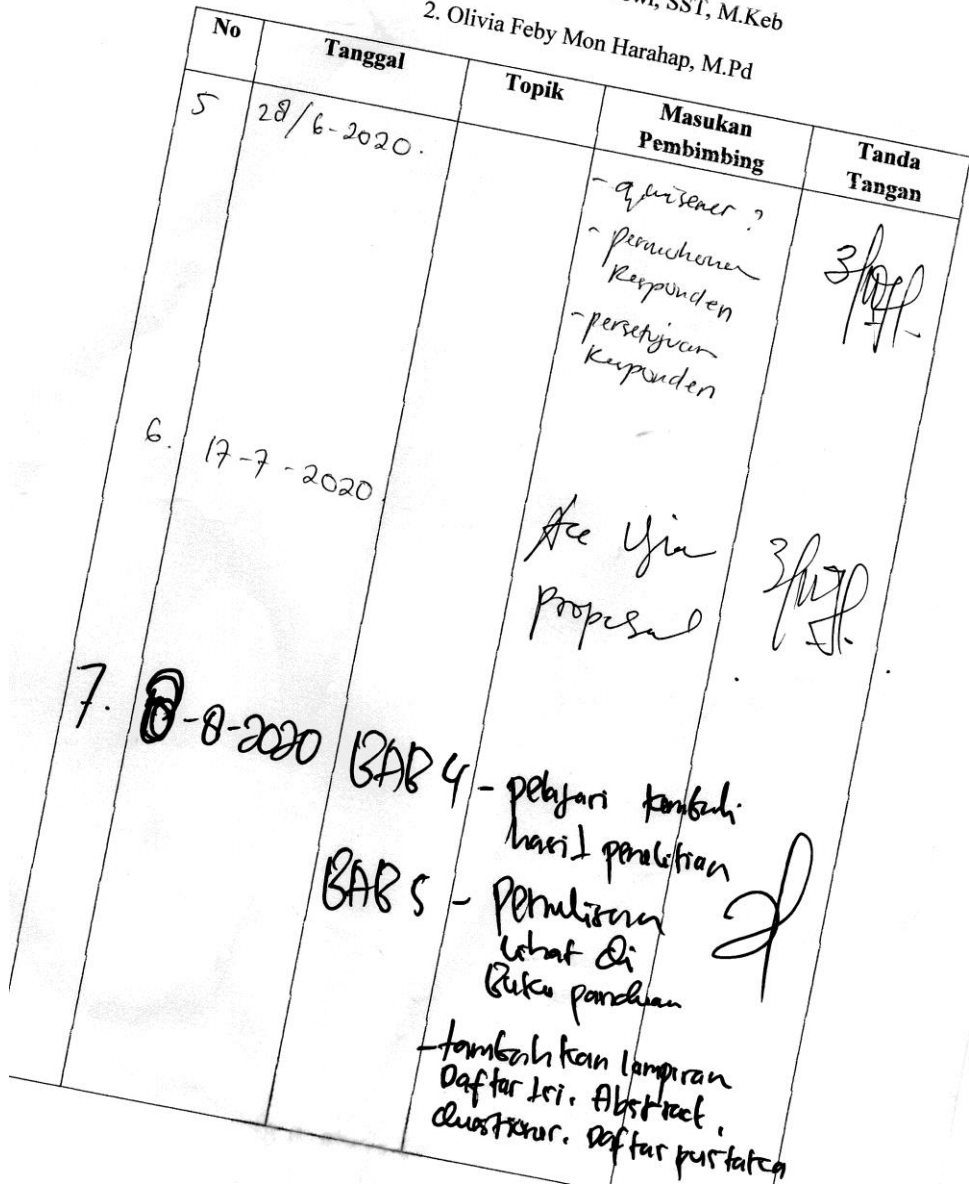 SST, M.Keb
2. Olivia Feby Mon Harahap, M.Pd
No Tanggal Topik Masukan Pembimbing Tanda Tangan
5 28/6-2020.
- quisener ?
- permohonan
Responden
- persetujuan
Responden
6. 17-7-2020
Acc Ujian
proposal
7. 8-8-2020 BAB 4 - pelajari kembali
hasil penelitian
BAB 5 - Penulisan
Lihat di
Buku panduan
- tambahkan lampiran
Daftar Isi. Abstract.
Daftar pustaka